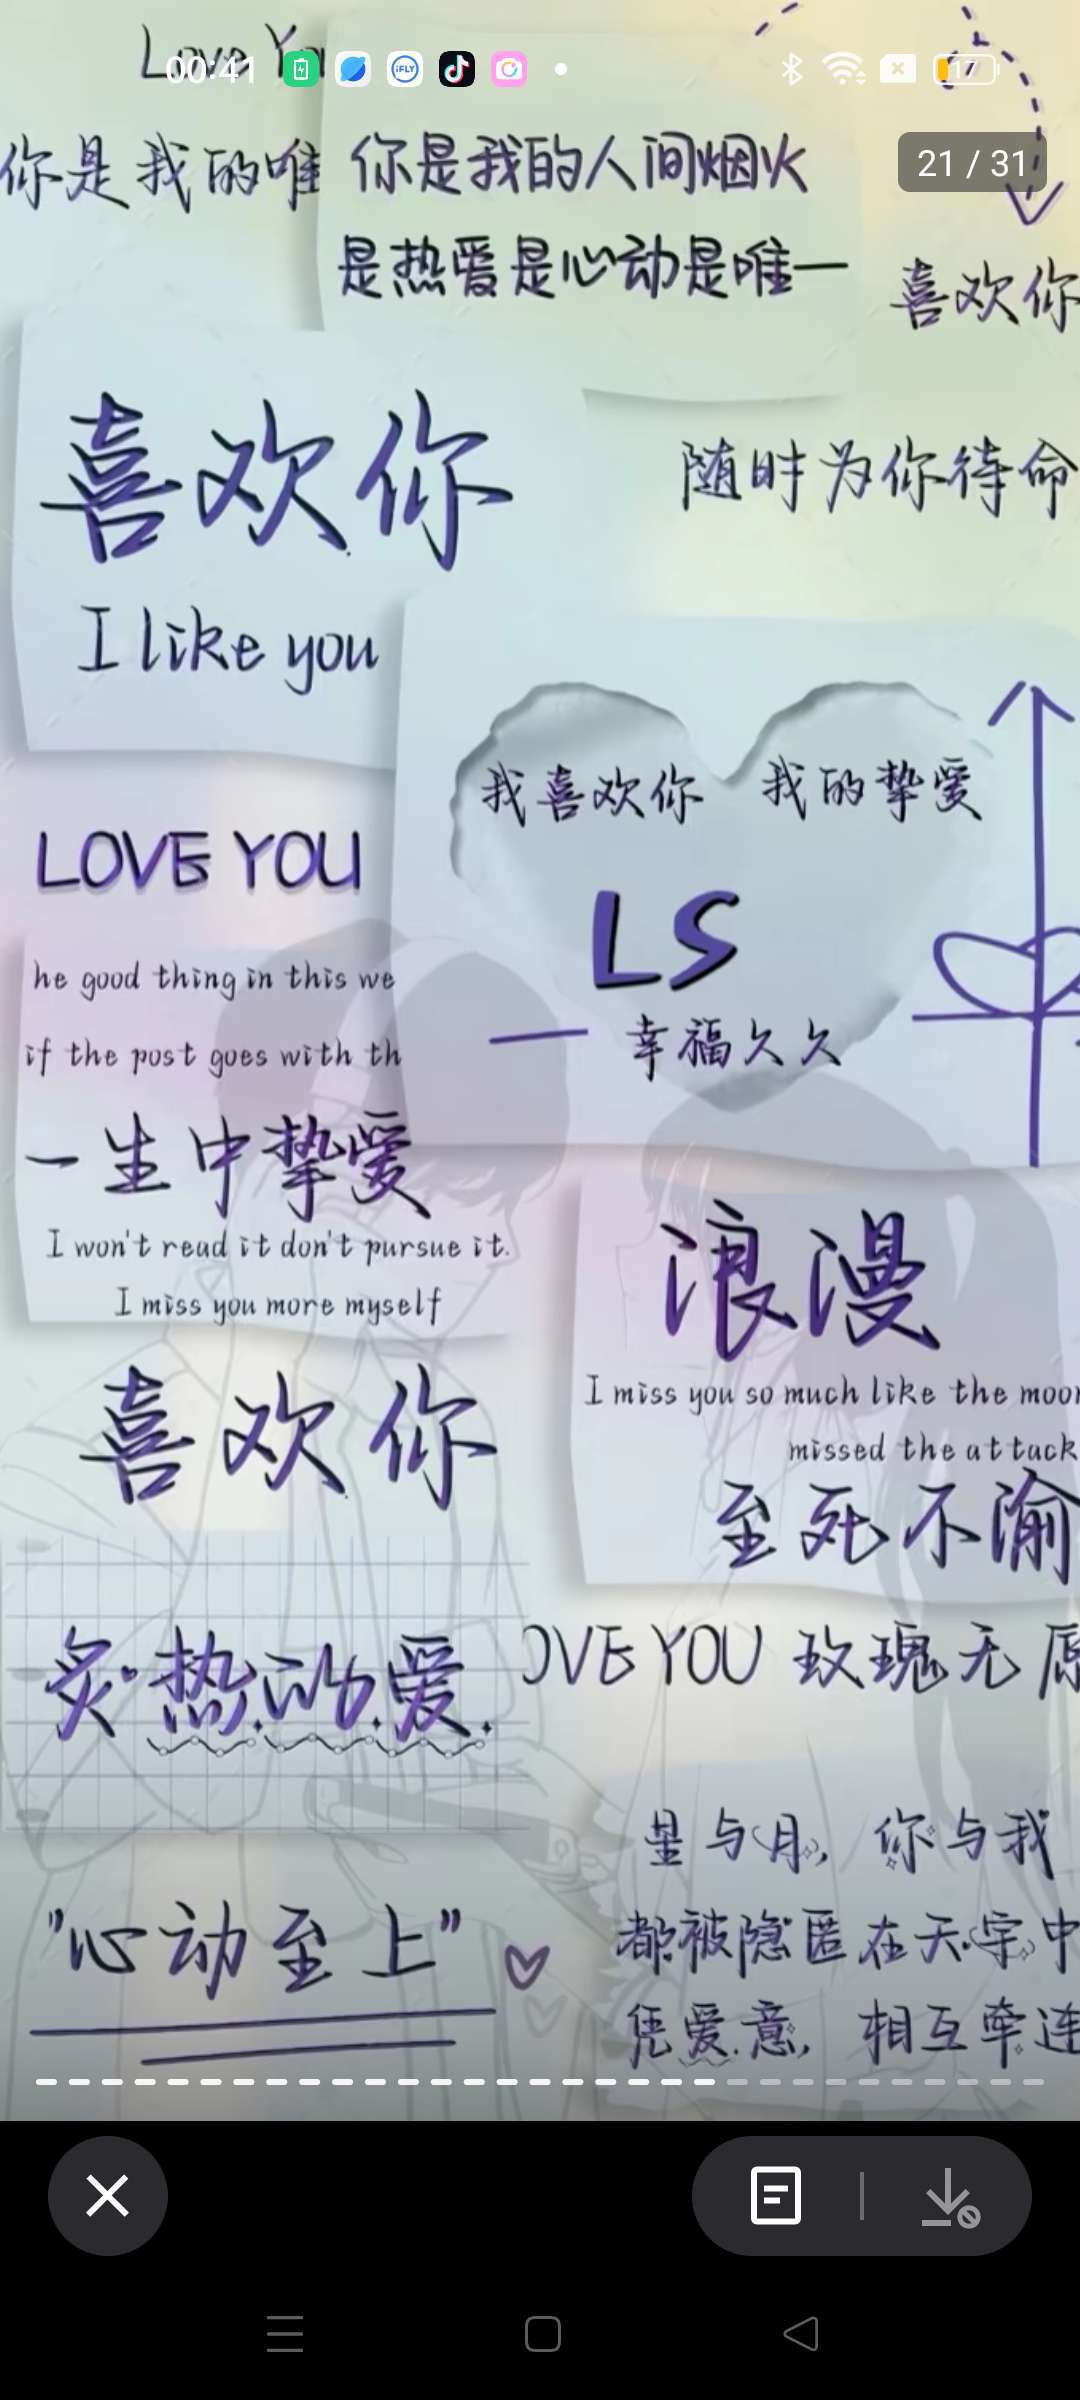 Love You
00:41
iFLY
17
21 / 31
你是我的唯
你是我的人间烟火
是热爱是心动是唯一
喜欢你
喜欢你
随时为你待命
I like you
我喜欢你 我的挚爱
LOVE YOU
LS
幸福久久
he good thing in this we
if the post goes with th
一生中挚爱
I won't read it don't pursue it.
I miss you more myself
浪漫
I miss you so much like the moon
missed the attack
喜欢你
至死不渝
炙热的爱
OVE YOU 玫瑰无原
星与月，你与我
都被隐匿在天宇中
凭爱意，相互牵连
"心动至上"